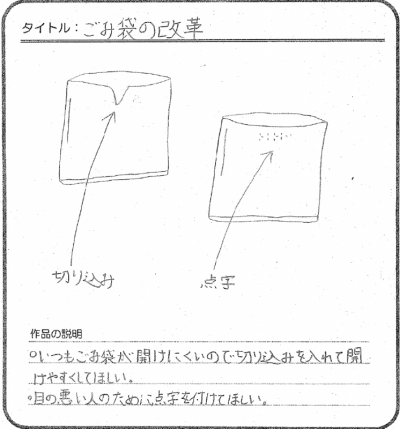 タイトル：ごみ袋の改革
切り込み
点字
作品の説明
○いつもごみ袋が開けにくいので切り込みを入れて開
けやすくしてほしい。
○目の悪い人のために点字を付けてほしい。